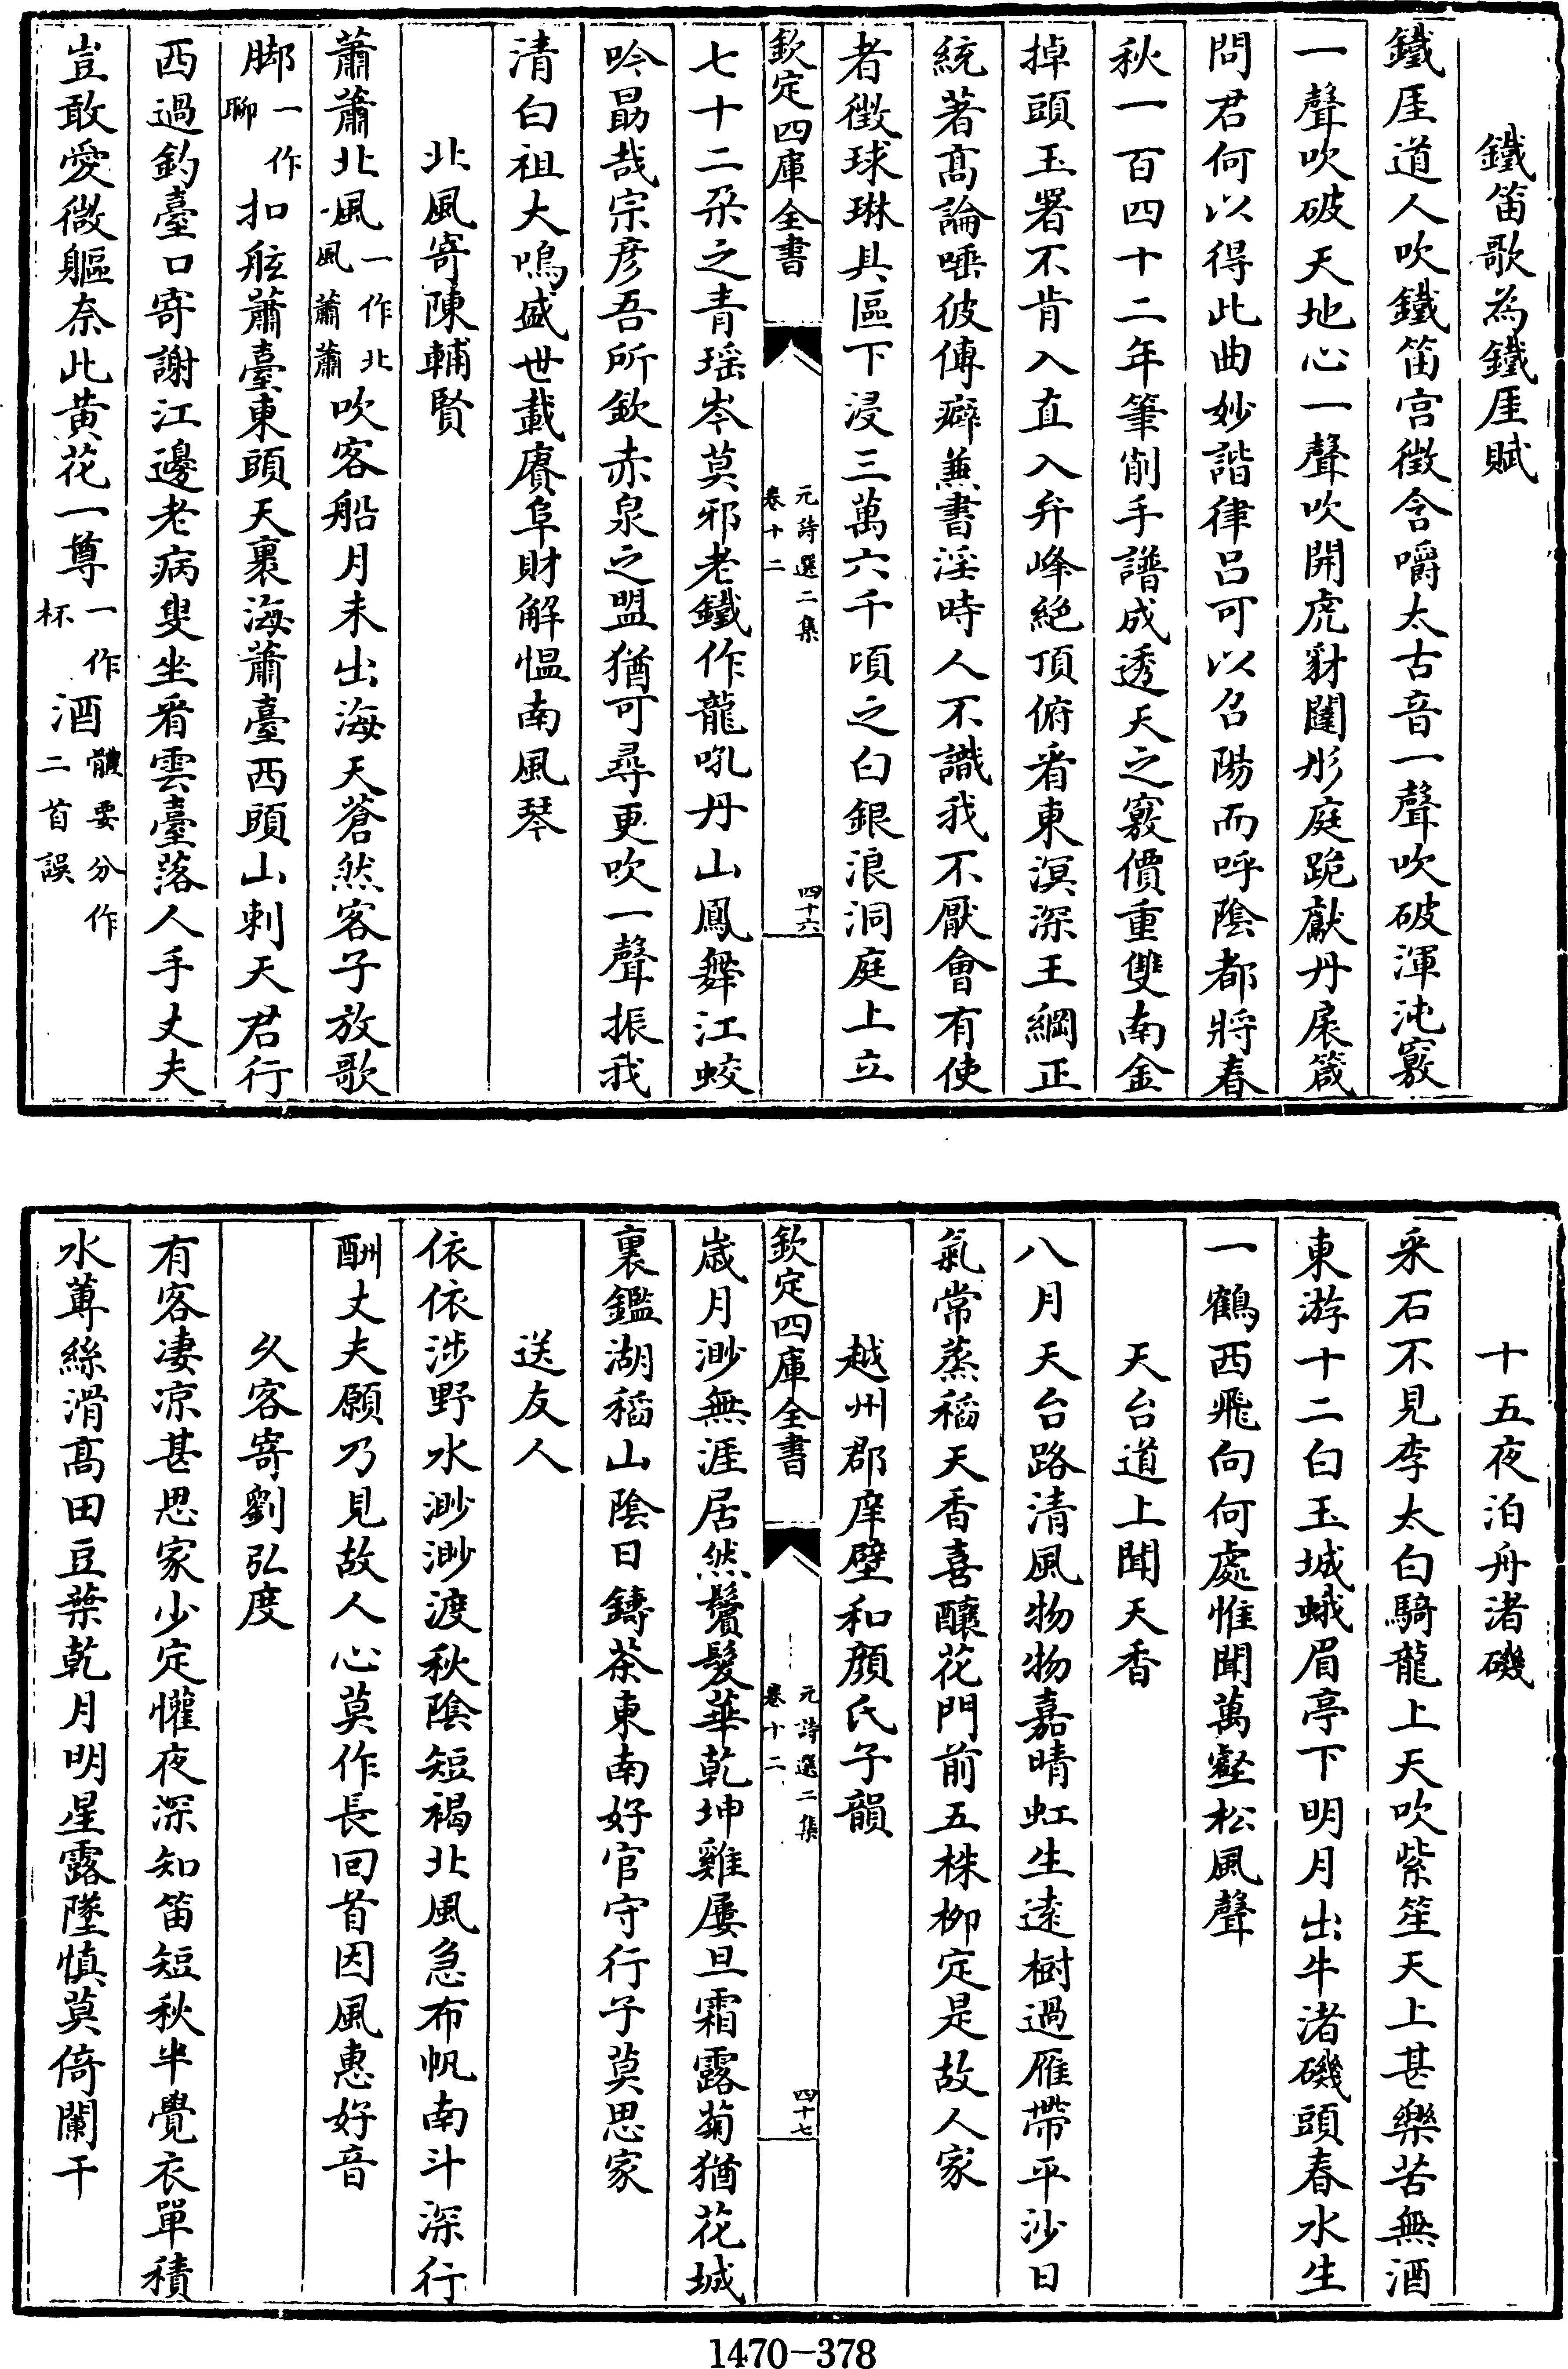 鐵笛歌為鐵厓賦
鐵厓道人吹鐵笛宫徵含嚼太古音一聲吹破渾沌竅
一聲吹破天地心一聲吹開虎豺闥彤庭跪獻丹扆箴
問君何以得此曲妙諧律呂可以召陽而呼陰都將春
秋一百四十二年筆削手譜成透天之竅價重雙南金
掉頭玉署不肯入直入弁峰絶頂俯㸔東溟深王綱正
統著髙論唾彼傳癖蕪書淫時人不識我不厭㑹有使
者徵球琳具區下浸三萬六千頃之白銀浪洞庭上立
欽定四庫全書
元詩選二集
卷十二
四十六
七十二朶之青瑶岑莫邪老鐵作龍吼丹山鳳舞江蛟
吟勗哉宗彦吾所欽赤泉之盟猶可尋更吹一聲振我
清白祖大鳴盛世載賡阜財解愠南風琴
北風寄陳輔賢
蕭蕭北風一作北風蕭蕭吹客船月未出海天蒼然客子放歌
脚一作聊扣舷蕭臺東頭天裹海蕭臺西頭山刺天君行
西過釣臺口寄謝江邊老病叟坐㸔雲臺落人手丈夫
豈敢愛微軀奈此黄花一尊一作杯酒體要分作二首誤
十五夜泊舟渚磯
采石不見李太白騎龍上天吹紫笙天上甚樂苦無酒
東游十二白玉城蛾眉亭下明月出牛渚磯頭春水生
一鶴西飛向何處惟聞萬壑松風聲
天台道上聞天香
八月天台路清風物物嘉晴虹生遠樹過雁帶平沙日
氣常蒸稻天香喜釀花門前五株栁定是故人家
越州郡庠壁和顔氏子韻
欽定四庫全書
元詩選二集
卷十二
四十七
歳月渺無涯居然鬢髮華乾坤雞屢旦霜露菊猶花城
裏鑑湖稻山陰日鑄茶東南好官守行子莫思家
送友人
依依涉野水渺渺渡秋陰短褐北風急布帆南斗深行
酬丈夫願乃見故人心莫作長回首因風惠好音
久客寄劉弘度
有客淒凉甚思家少定懽夜深知笛短秋半覺衣單積
水蓴絲滑髙田豆葉乾月明星露墜慎莫倚闌干
1470-378